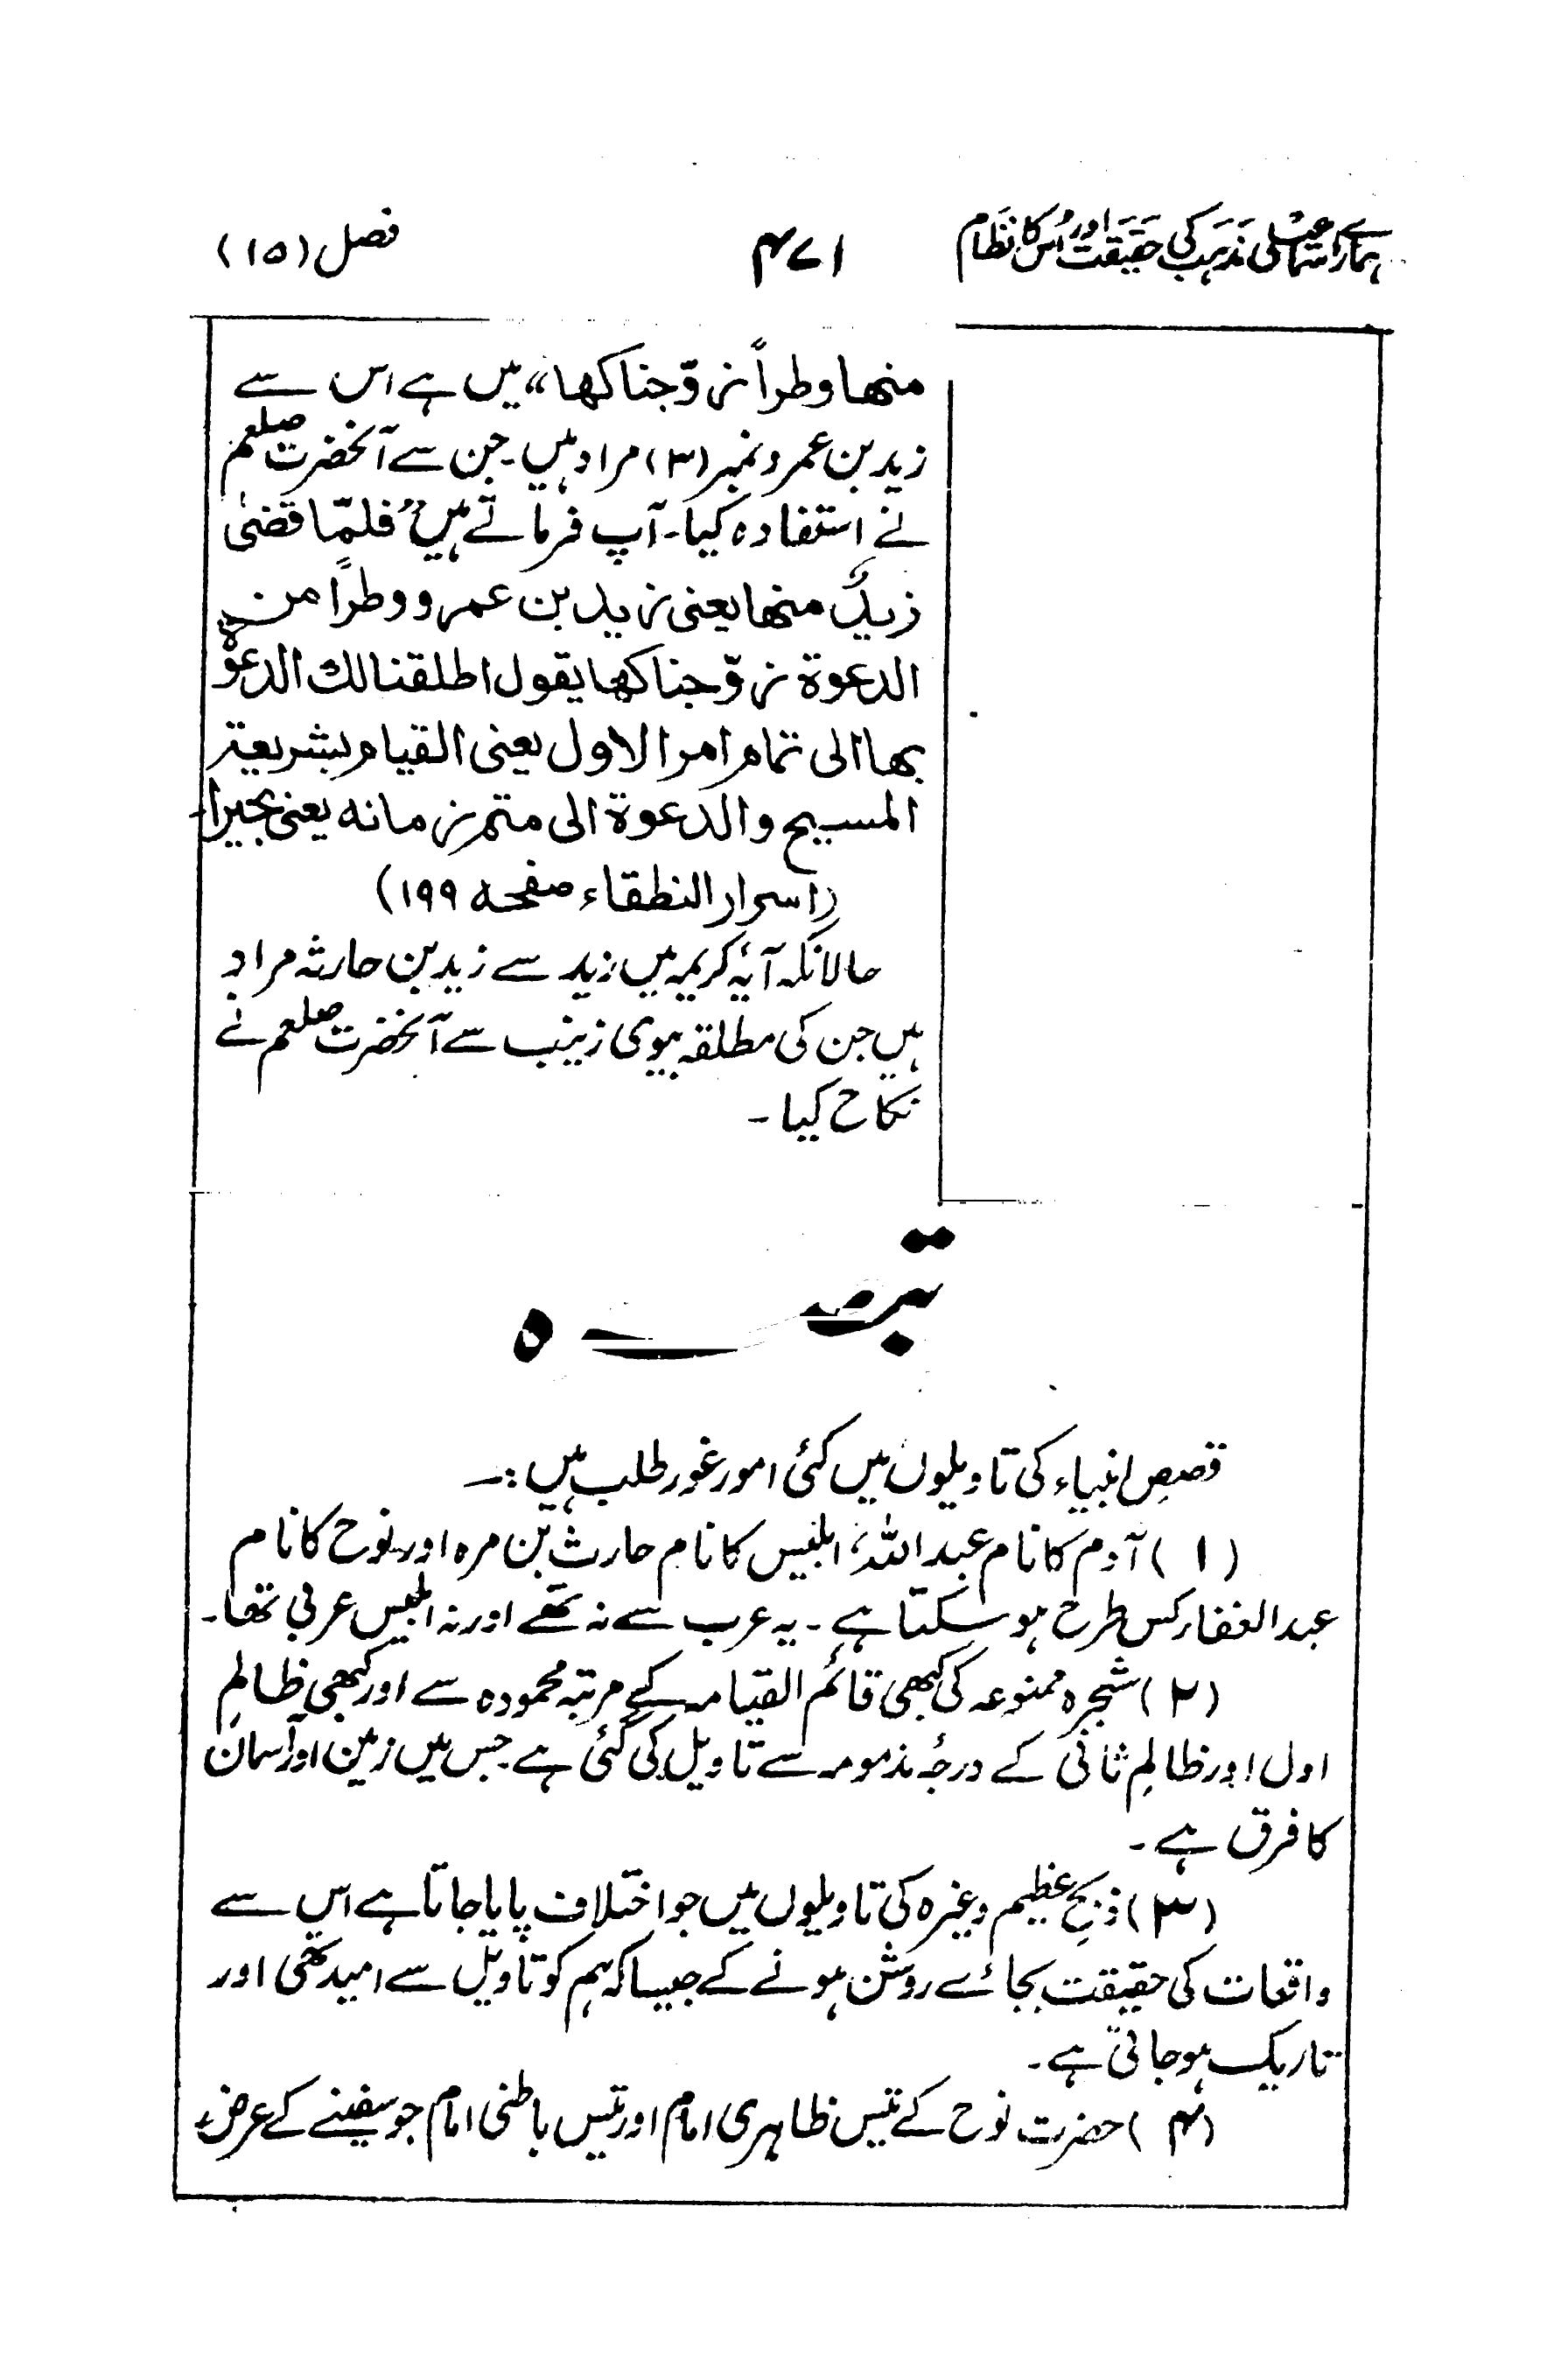 ہمارے اسماعیلی مذہب کی حقیقت اور اُس کا نظام
۴۷۱
فصل (۱۵)
منھا وطراً زوّجناکھا“ میں ہے اس سے
زید بن عمر و نمبر (۳) مراد ہیں۔ جن سے آنحضرت صلعم
نے استفادہ کیا۔ آپ فرماتے ہیں ”فلمّا قضیٰ
زیدٌ منھا یعنی زید بن عمرو وطراً من
الدعوة زوّجناکھا یقول اطلقنا لك الدعوة
بھا الی تمام امر الاول یعنی القیام بشریعة
المسیح والدعوة الی متم زمانه یعنی بحیرا۔
(اسرار النطقاء صفحہ ۱۹۹)
حالانکہ آیۂ کریمہ میں زید سے زید بن حارثہ مراد
ہیں جن کی مطلقہ بیوی زینب سے آنحضرت صلعم نے
نکاح کیا۔
تبصرہ
قصصِ انبیاء کی تاویلوں میں کئی امور غور طلب ہیں:۔
(۱) آدم کا نام عبد اللہ، ابلیس کا نام حارث بن مرہ اور نوح کا نام
عبد الغفار کس طرح ہو سکتا ہے۔ یہ عرب سے نہ تھے اور نہ ابلیس عربی تھا۔
(۲) شجرہ ممنوعہ کی کبھی قائم القیامہ کے مرتبہ محمودہ سے اور کبھی ظالمِ
اول اور ظالمِ ثانی کے درجۂ مذمومہ سے تاویل کی گئی ہے۔ جس میں زمین اور آسمان
کا فرق ہے۔
(۳) ذبحِ عظیم وغیرہ کی تاویلوں میں جو اختلاف پایا جاتا ہے اس سے
واقعات کی حقیقت بجائے روشن ہونے کے جیسا کہ ہم کو تاویل سے امید تھی اور
تاریک ہو جاتی ہے۔
(۴) حضرت نوح کے تیس ظاہری امام اور تیس باطنی امام جو سفینے کے عرض